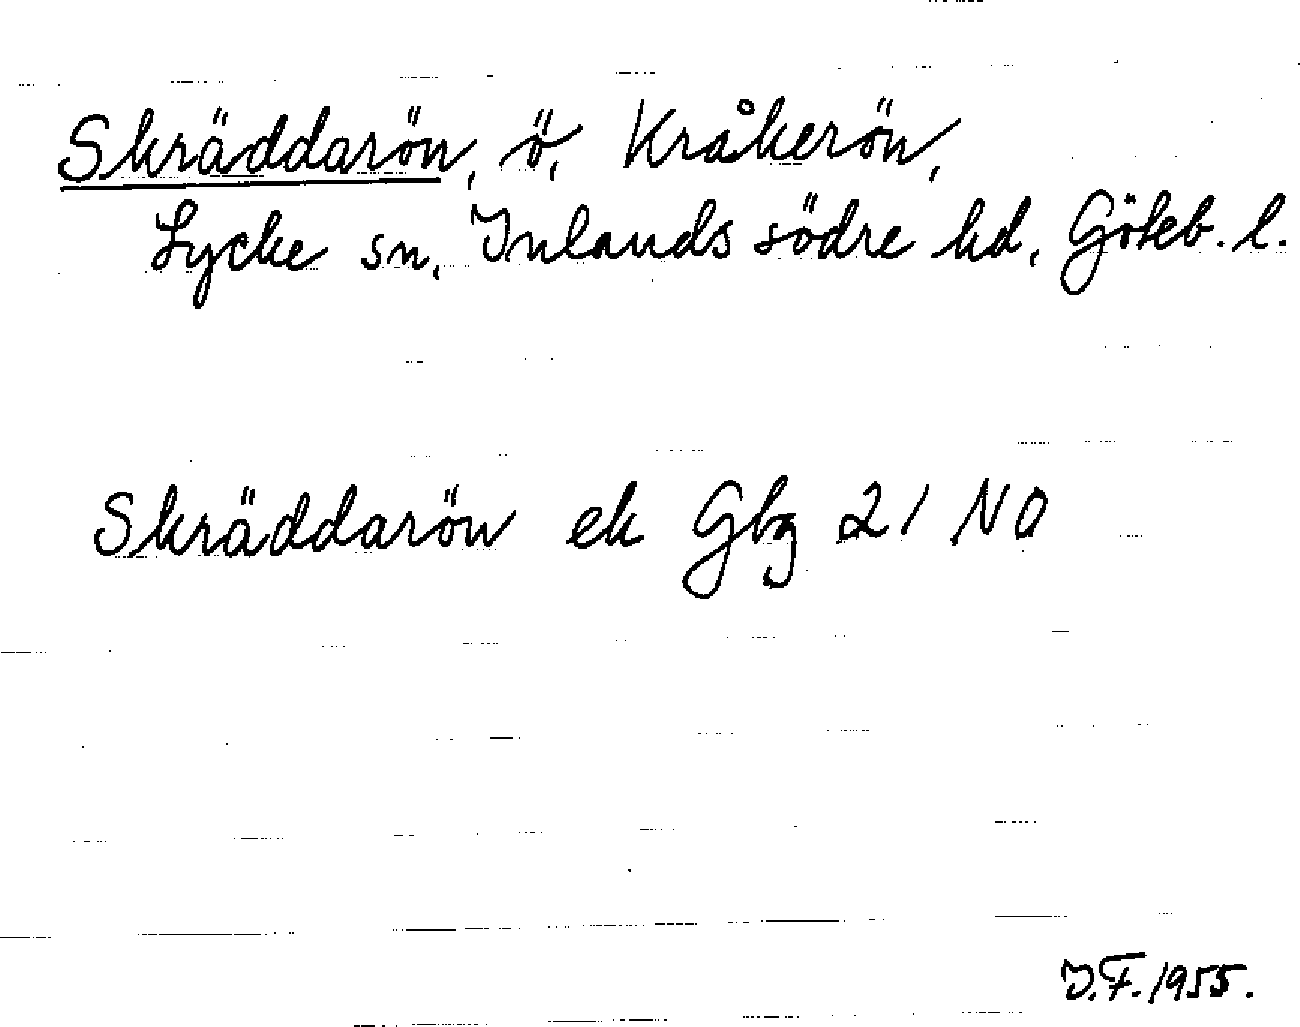 Skräddarön, ö, Kråkerön,
Lycke sn, Inlands södre hd, Göteb. l.
Skräddarön ek Gbg 21 NO
I.F. 1955.